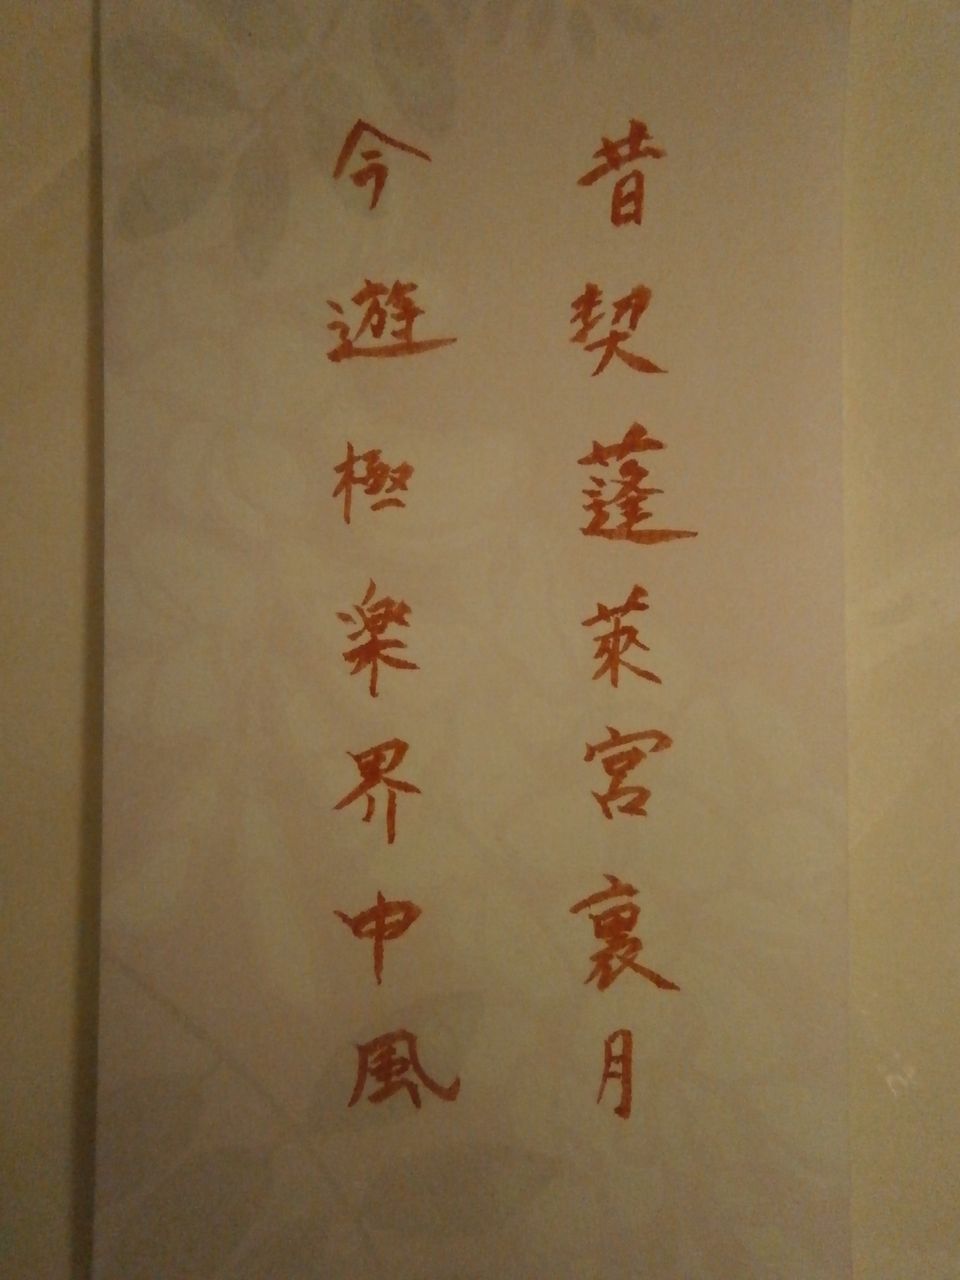 昔契蓬萊宮裏月
今遊極楽界中風